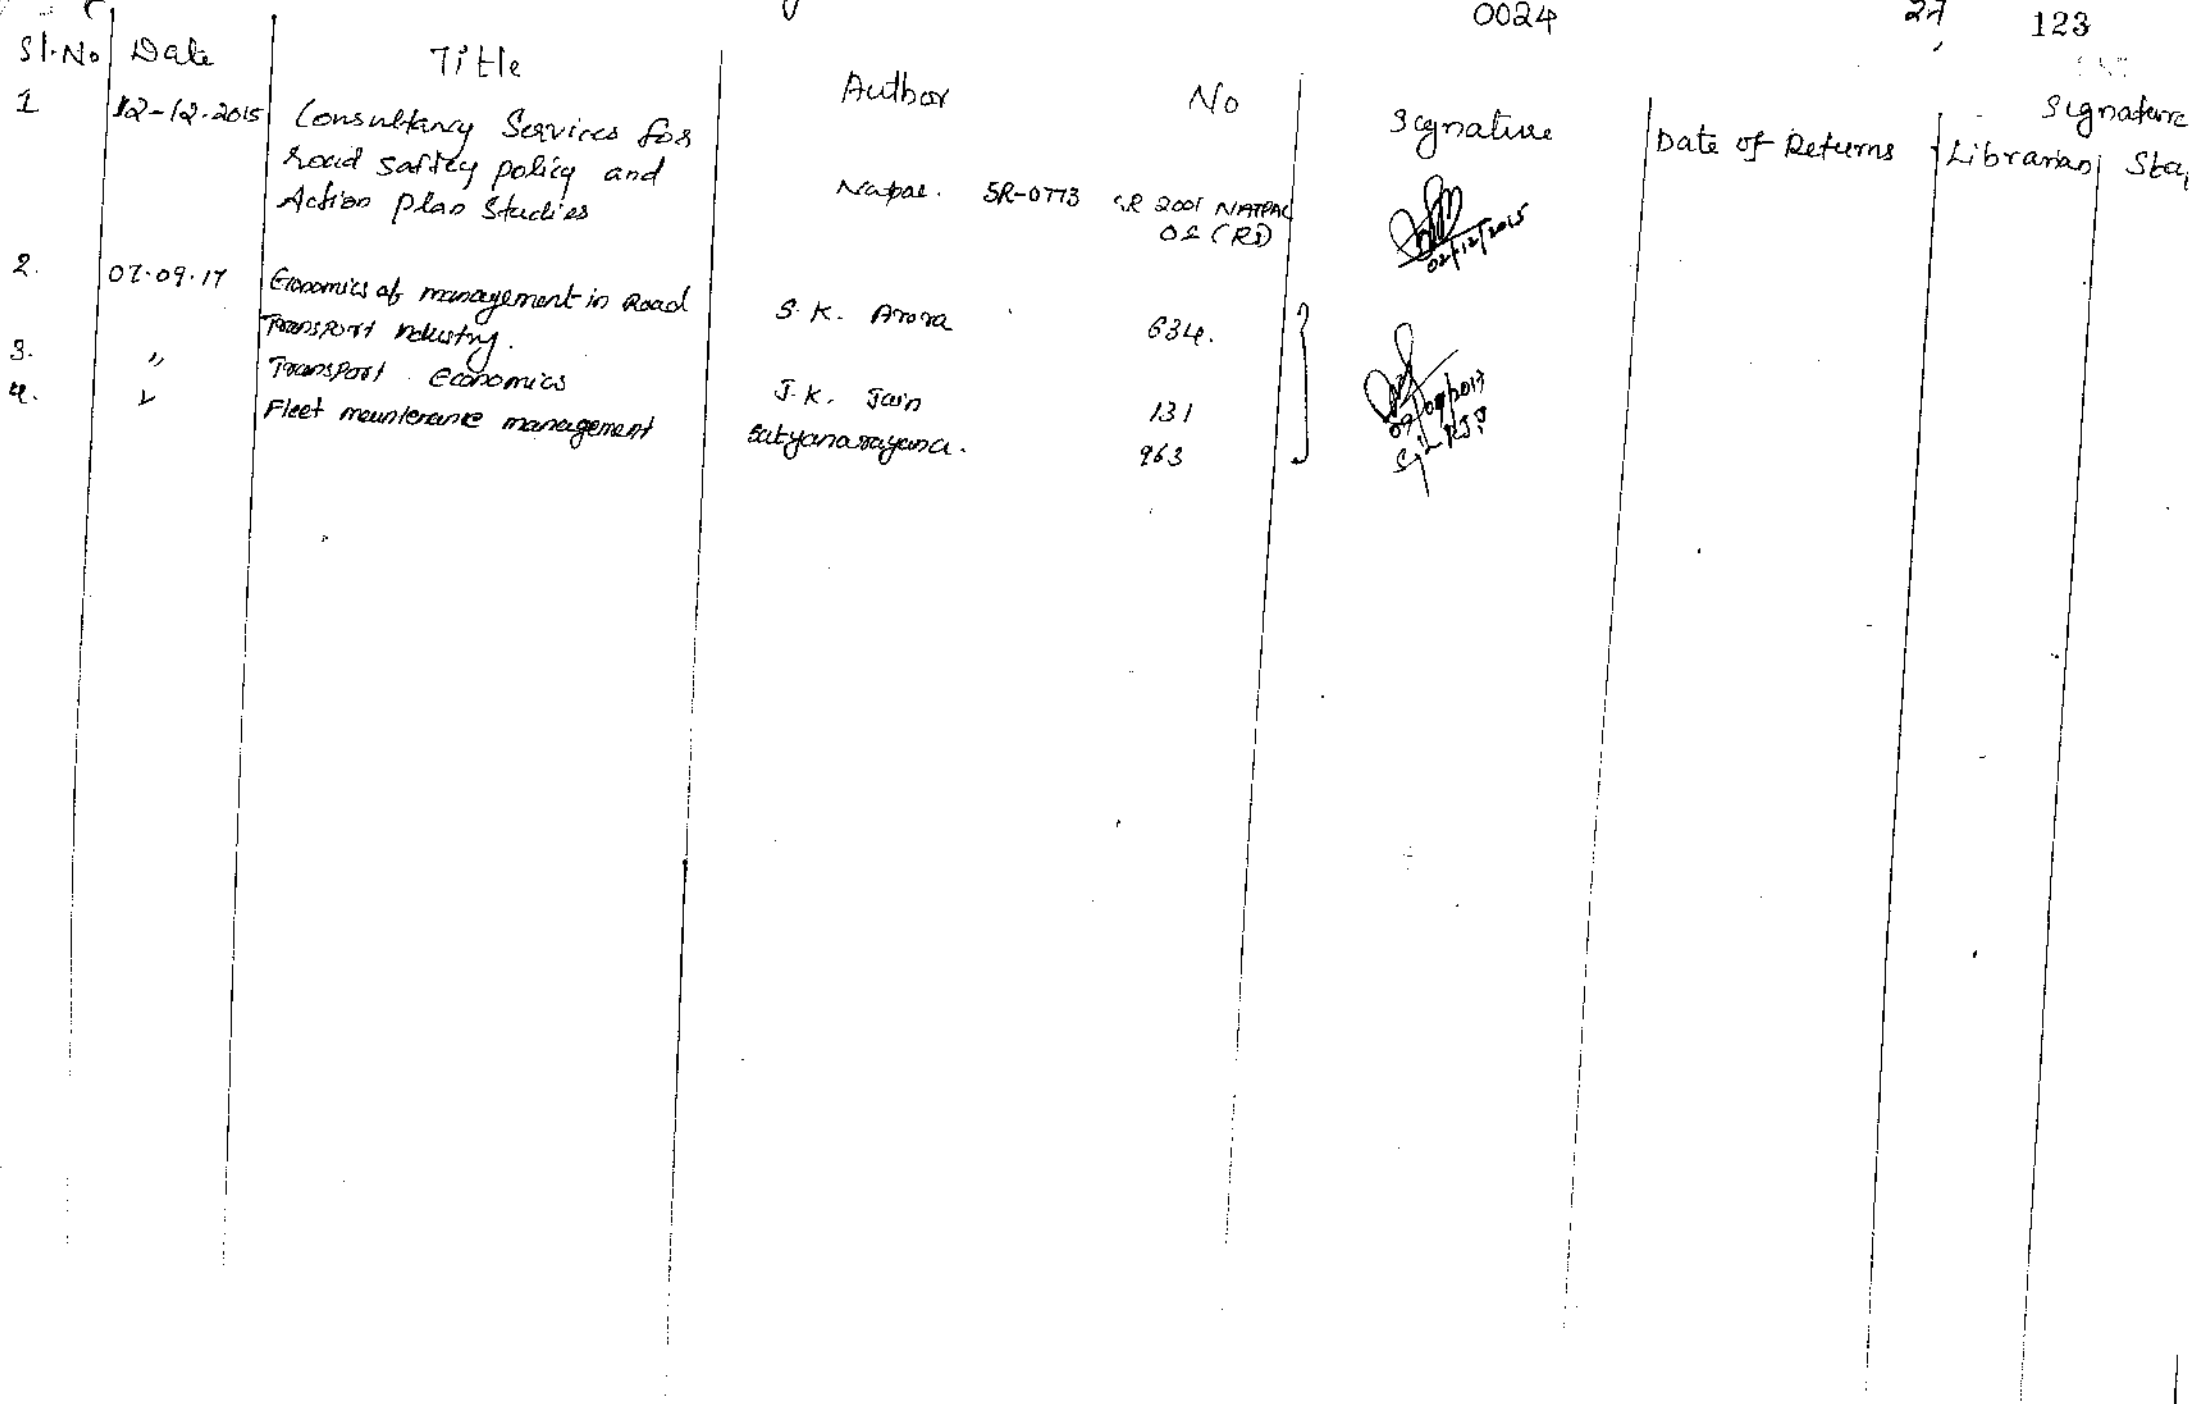 0024 27 123
Sl.No Date Title Author No Signature Date of Returns Signature
Librarian Sta
1 12-12-2015 Consultancy Services for
road saftey policy and
Action plan Studies
Natpac. SR-0773 SR 2001 NATPAC
02/12/2015
2. 07.09.17 Economics of management in Road
Transport Industry.
S.K. Arora 634.
3. " Transport Economics J.K. Jain 131
4. Fleet maintenance management Satyanarayana. 963